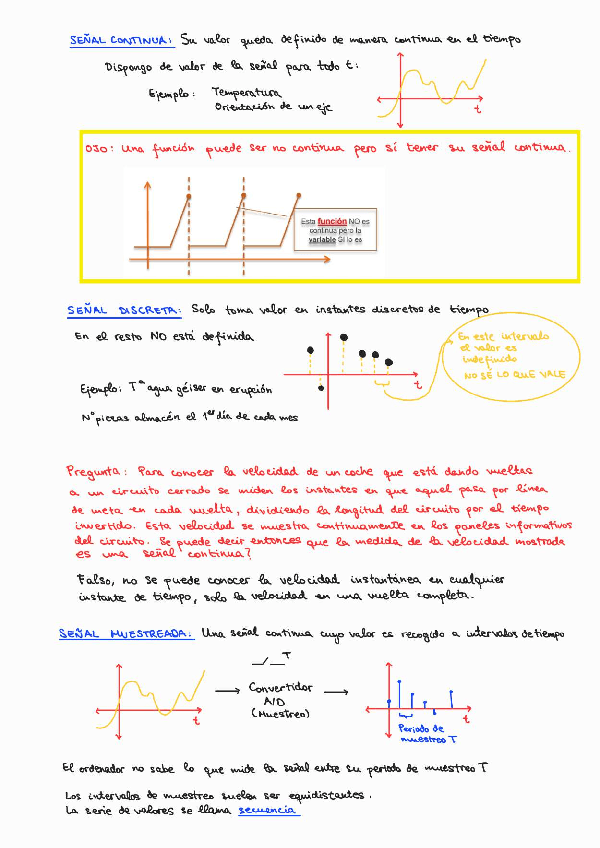 SEÑAL CONTINUA: Su valor queda definido de manera continua en el tiempo
Dispongo de valor de la señal para todo t:
Ejemplo: Temperatura
Orientación de un eje
t
OJO: Una función puede ser no continua pero sí tener su señal continua.
Esta función NO es
continua pero la
variable SI lo es
SEÑAL DISCRETA: Solo toma valor en instantes discretos de tiempo
En el resto NO está definida
En este intervalo
el valor es
indefinido
NO SÉ LO QUE VALE
t
Ejemplo: Tª agua géiser en erupción
Nº piezas almacén el 1er día de cada mes
Pregunta: Para conocer la velocidad de un coche que está dando vueltas
a un circuito cerrado se miden los instantes en que aquel pasa por línea
de meta en cada vuelta, dividiendo la longitud del circuito por el tiempo
invertido. Esta velocidad se muestra continuamente en los paneles informativos
del circuito. Se puede decir entonces que la medida de la velocidad mostrada
es una señal continua?
Falso, no se puede conocer la velocidad instantánea en cualquier
instante de tiempo, solo la velocidad en una vuelta completa.
SEÑAL MUESTREADA: Una señal continua cuyo valor es recogido a intervalos de tiempo
T
Convertidor
A/D
(Muestreo)
t
t
Periodo de
muestreo T
El ordenador no sabe lo que mide la señal entre su periodo de muestreo T
Los intervalos de muestreo suelen ser equidistantes.
La serie de valores se llama secuencia